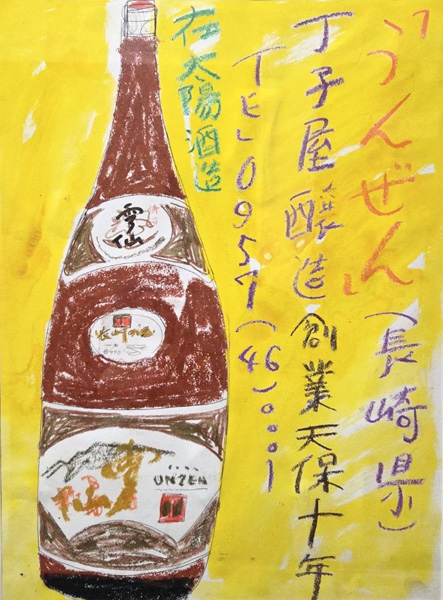 「うんぜん」(長崎県)
丁子屋醸造創業天保十年
TEL0957(46)0001
在太陽酒造
雲仙
雲仙
UNZEN